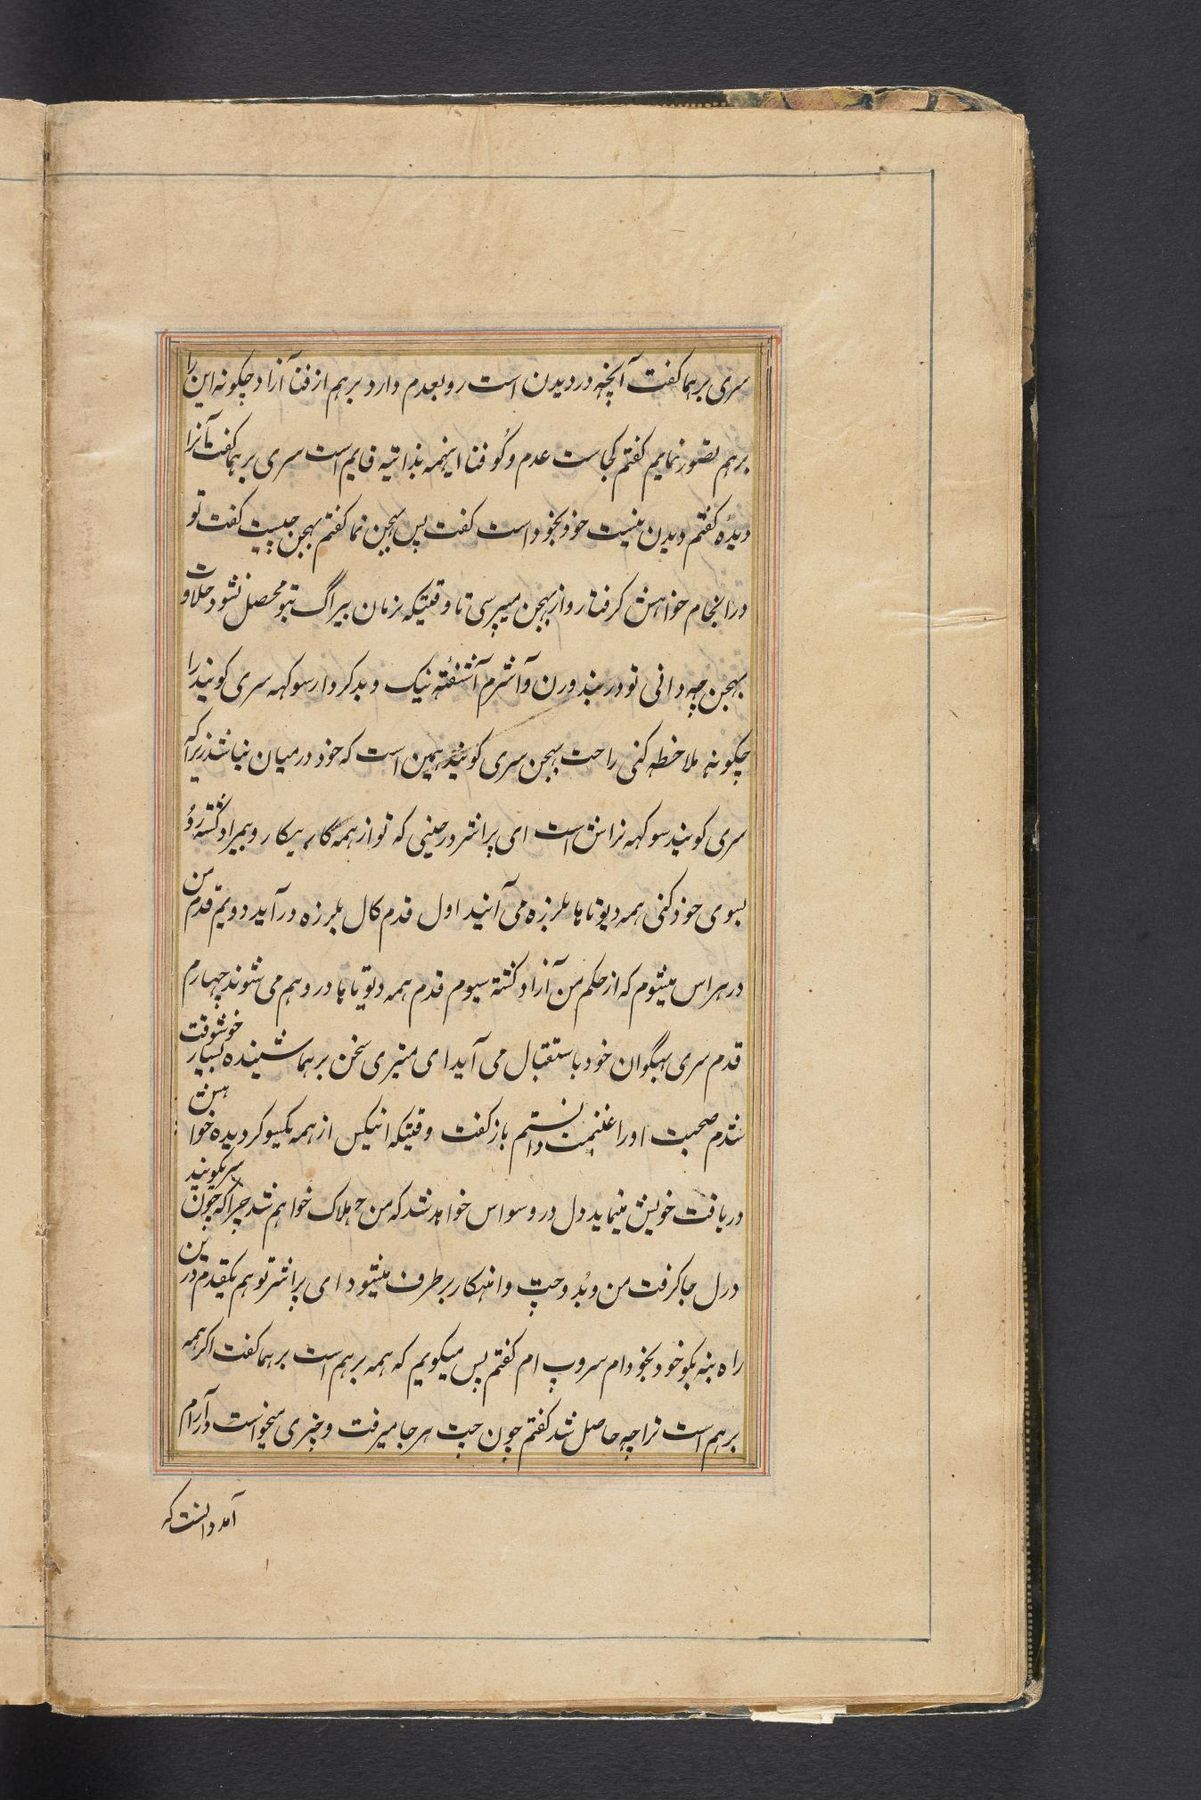 سری برهما کفت آنچه در دیدن است رو بعدم دارد برهم از فنا آزاد چکونه این را
برهم تصور نمایم کفتم کجاست عدم و کو فنا اینهمه بذاتیه قایم است سری برهما کفت تا آنرا
دیدهٔ کفتم دیدن نیست خود بخود است کفت پس بهجن نما کفتم بهجن چیست کفت تو
در انجام خواهش کرفتار و از بهجن میپرسی تا وقتیکه نرمان بیراگ بتو محصل نشود حلاوت
بهجن چه دانی تو در بند ورن و آشرم آشفتهٔ نیک و بد کردار سوکهه سری کوبند را
چکونه ملاحظه کنی راحت بهجن سری کوبند همین است که خود در میان نباشد زیرا که
سری کوبند سوکهه نراش است ای پرانتر در حینی که تو از همه کار بیکار و بیمراد کشته رو
بسوی خود کنی همه دیوتاها بلرزه می آیند اول قدم کال بلرزه در آید دویم قدم من
در هراس میشوم که از حکم من آزاد کشته سیوم قدم همه دیوتاها در وهم می شوند چهارم
قدم سری بهگوان خود باستقبال می آید ای میتری سخن برهما شنیده بسیار خوشوقت
شدم صحبت او را غنیمت دانستم باز کفت وقتیکه اینکس از همه یکسو کردیده خواهش
دریافت خویش مینماید دل در وسواس خواهد شد که من هلاک خواهم شد چرا که چون سریکوبند
در دل جا کرفت من و بُد و چت و اهنکار بر طرف میشود ای پرانتر تو هم یکقدم در این
راه بنه بکو خود بخودام سروپ ام کفتم پس میکویم که همه برهم است برهما کفت اکر همه
برهم است ترا چه حاصل شد کفتم چون چت هر جا میرفت و چیزی میخواست در آرام
آمد دانست که